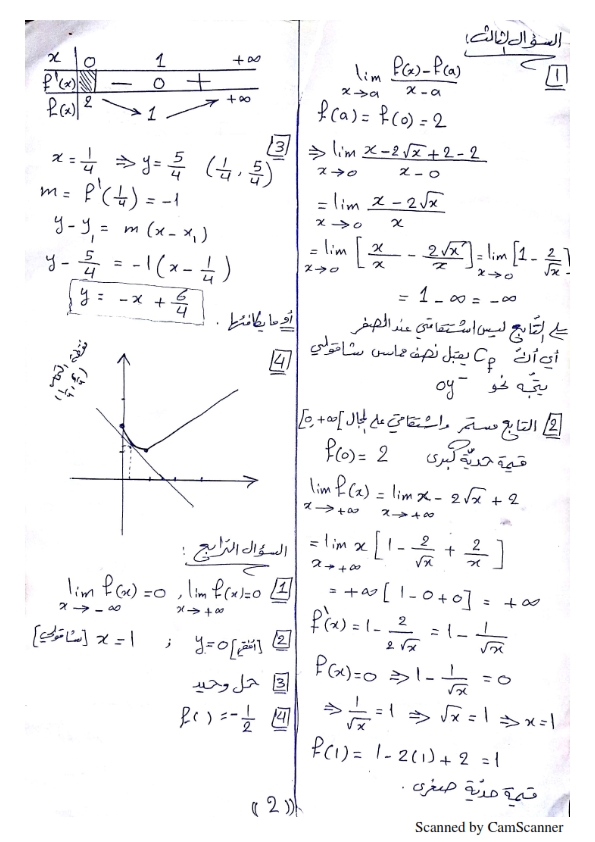 السؤال الثالث:
1
lim x→a f(x)-f(a) / x-a
f(a) = f(0) = 2
⇒ lim x→0 x-2√x+2-2 / x-0
= lim x→0 x-2√x / x
= lim x→0 [x/x - 2√x/x] = lim x→0 [1 - 2/√x]
= 1 - ∞ = -∞
التابع ليس اشتقاقي عند الصفر
أي أن Cf يقبل نصف مماس شاقولي
يتجه نحو oy⁻
2 التابع مستمر واشتقاقي على المجال ]0,+∞[
f(0) = 2 قيمة حدية كبرى
lim x→+∞ f(x) = lim x→+∞ x - 2√x + 2
= lim x→+∞ x [1 - 2/√x + 2/x]
= +∞ [1-0+0] = +∞
f'(x) = 1 - 2/2√x = 1 - 1/√x
f'(x)=0 ⇒ 1 - 1/√x = 0
⇒ 1/√x = 1 ⇒ √x = 1 ⇒ x=1
f(1) = 1-2(1)+2 = 1
قيمة حدية صغرى .
x 0 1 +∞
f'(x) - 0 +
f(x) 2 ↘ 1 ↗ +∞
3
x = 1/4 ⇒ y = 5/4 (1/4, 5/4)
m = f'(1/4) = -1
y-y₁ = m(x-x₁)
y - 5/4 = -1(x - 1/4)
y = -x + 6/4
أو ما يكافئها .
4
السؤال الرابع :
1 lim x→+∞ f(x)=0 , lim x→-∞ f(x)=0
2 y=0 [أفقي] ; x=1 [شاقولي]
3 حل وحيد
4 f( ) = -1/2
((2))
Scanned by CamScanner